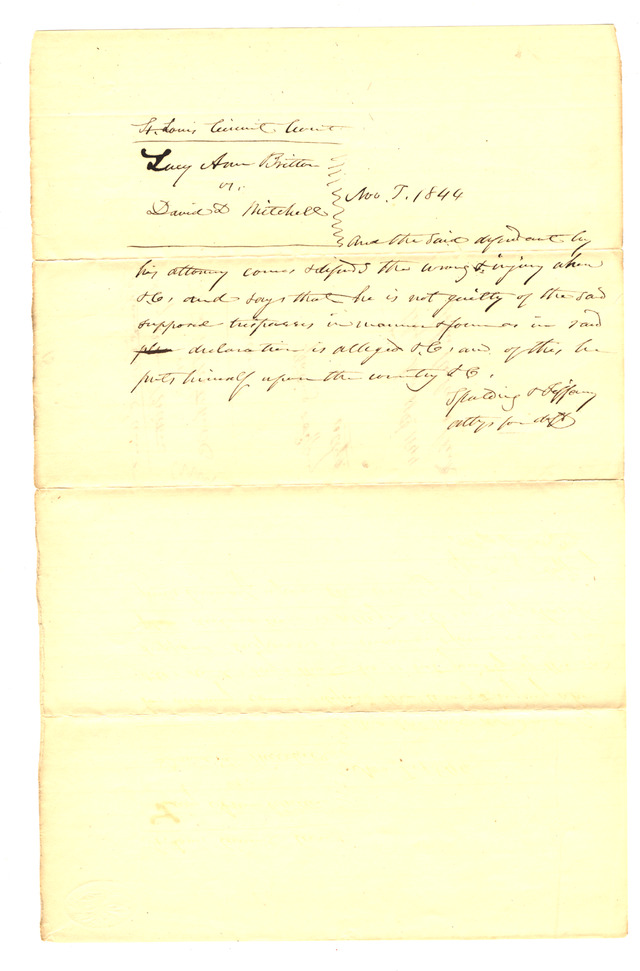 St. Louis Circuit Court
Lucy Ann Britton
vs.
David D Mitchell
Nov. T. 1844
And the said defendant by
his attorney comes & defends the wrong & injury when
&C, and says that he is not guilty of the said
supposed trespasses in manner & form as in said
declaration is alleged &C, and of this he
puts himself upon the country &C.
Spalding & Tiffany
attys for deft